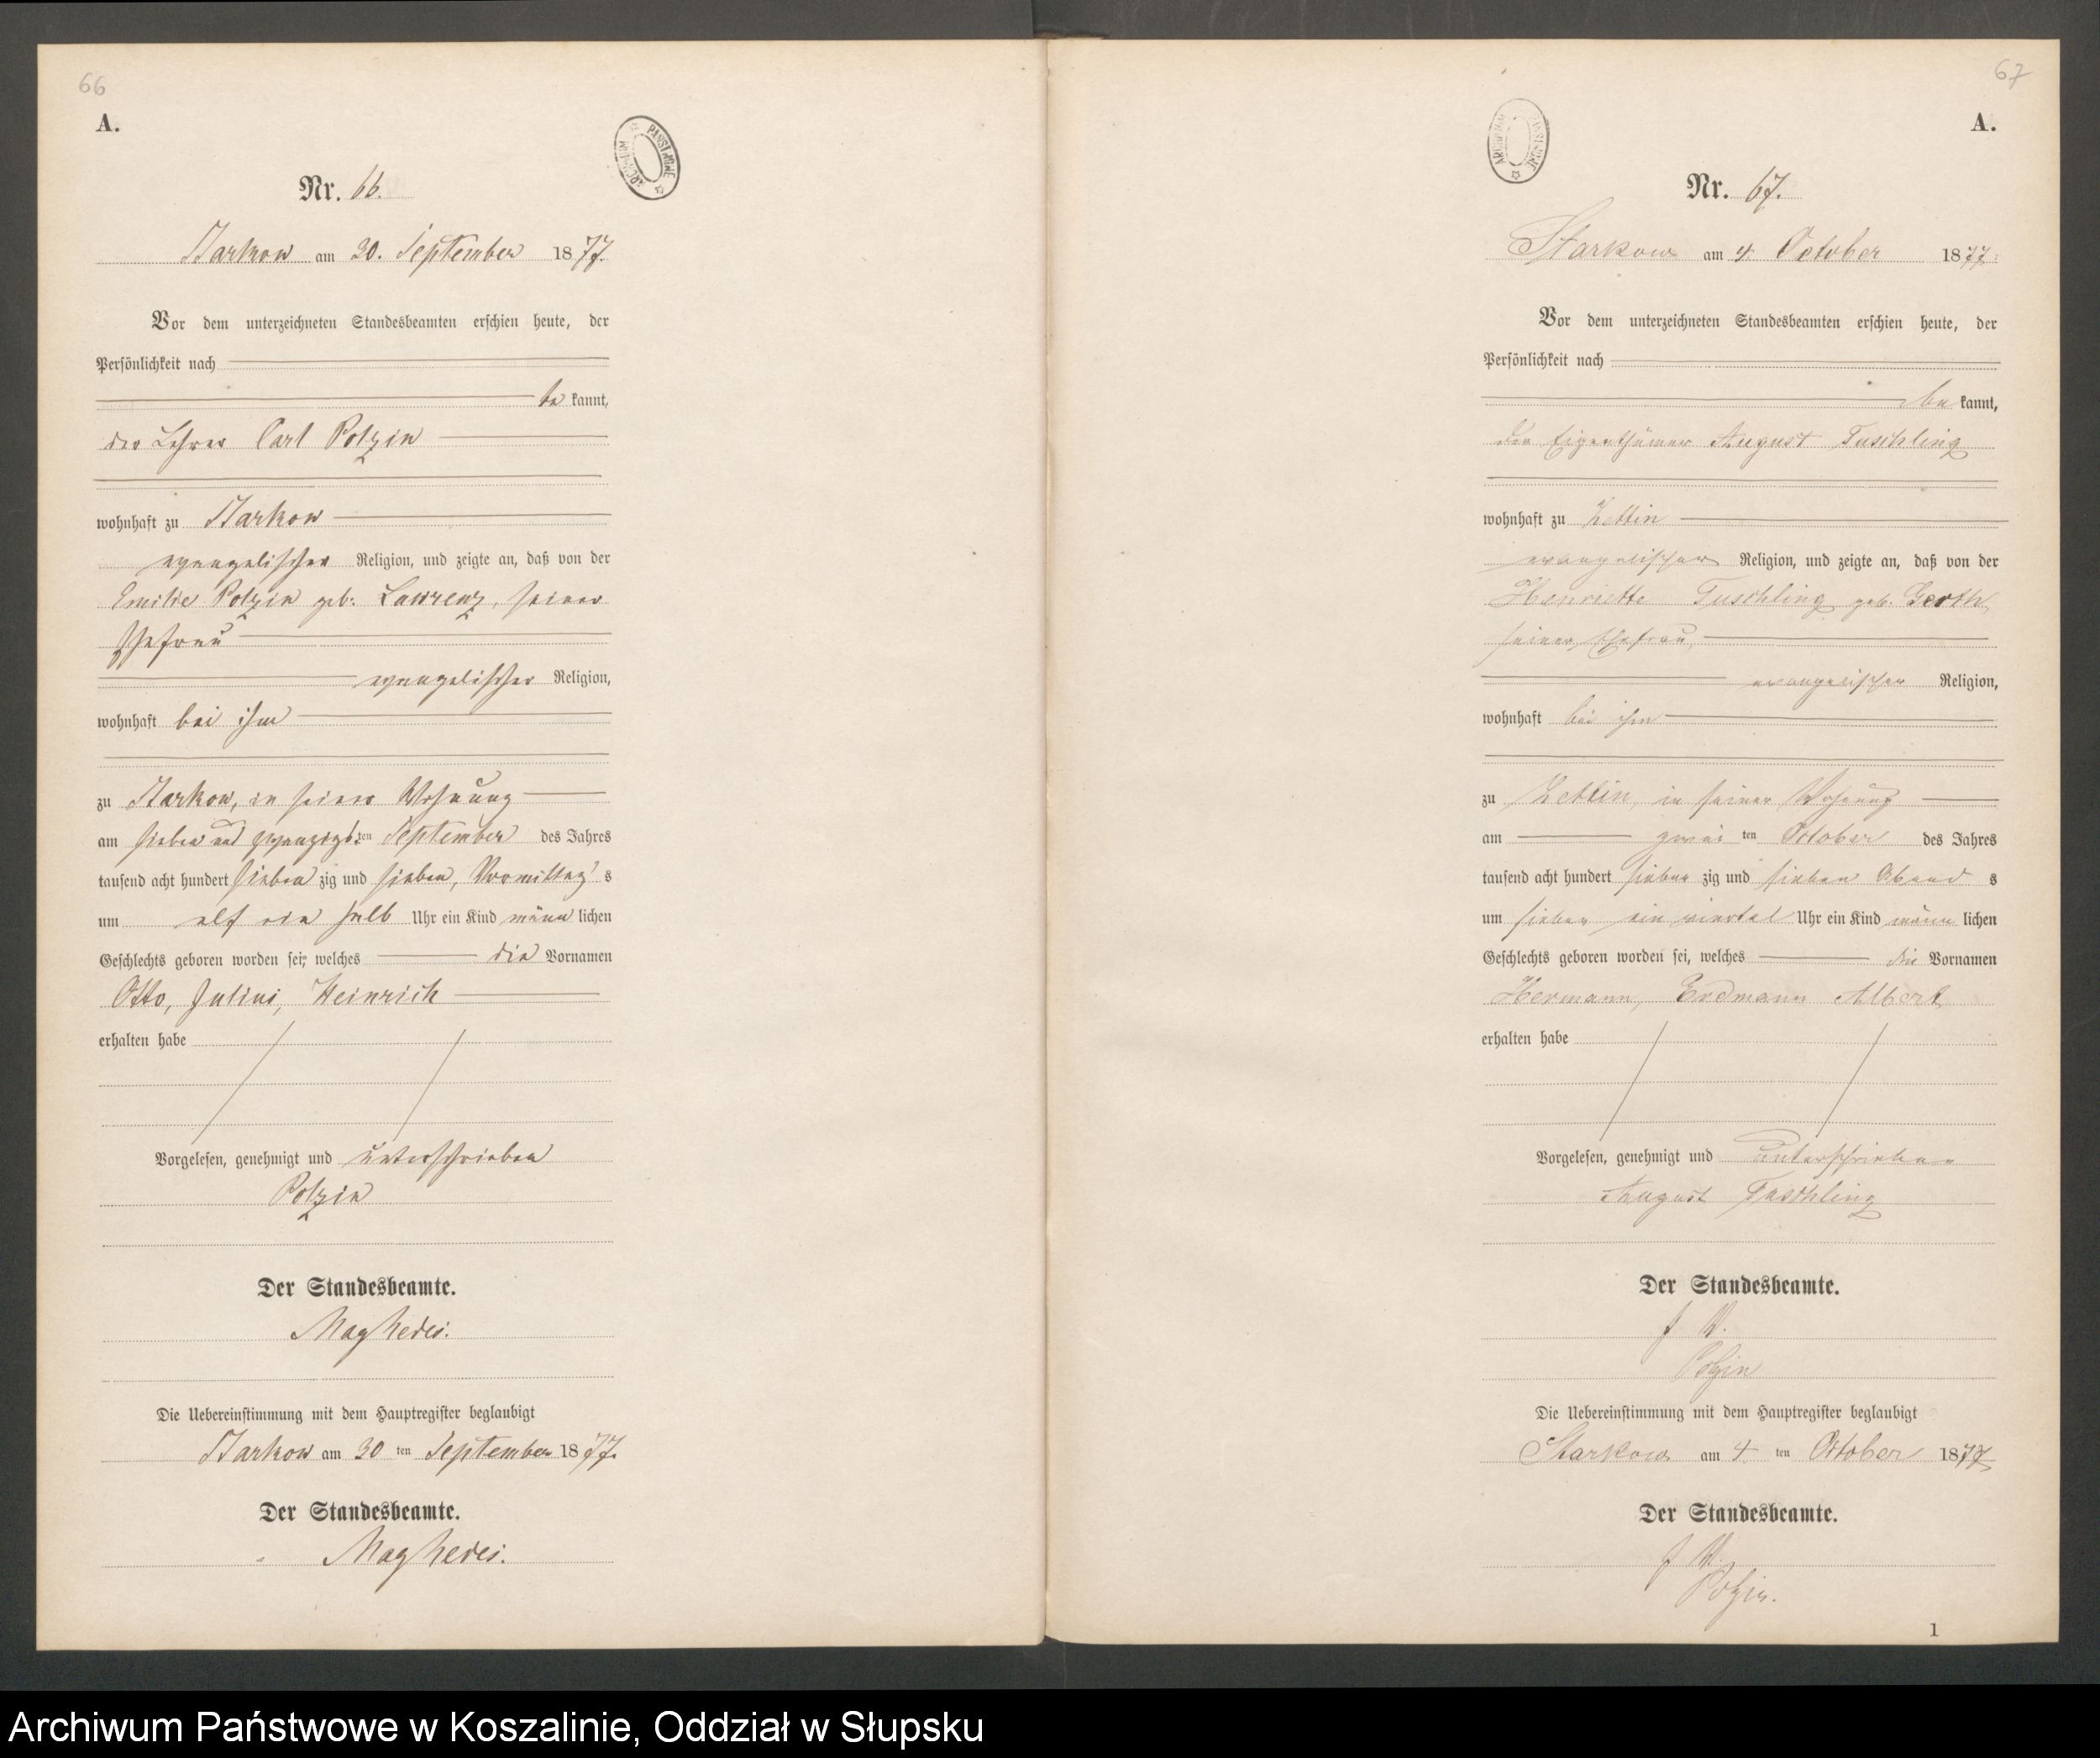 66
A.
ARCHIWUM PAŃSTWOWE
Nr. 66.
Starkow am 30. September 1877.
Vor dem unterzeichneten Standesbeamten erschien heute, der
Persönlichkeit nach
be kannt,
der Lehrer Carl Polzin
wohnhaft zu Starkow
evangelischer Religion, und zeigte an, daß von der
Emilie Polzin geb: Lawrenz, seiner
Ehefrau
evangelischer Religion,
wohnhaft bei ihm
zu Starkow, in seiner Wohnung
am sieben und zwanzigs ten September des Jahres
tausend acht hundert sieben zig und sieben, Vormittag s
um elf ein halb Uhr ein Kind männ lichen
Geschlechts geboren worden sei, welches die Vornamen
Otto, Julius, Heinrich
erhalten habe
Vorgelesen, genehmigt und unterschrieben
Polzin
Der Standesbeamte.
Die Uebereinstimmung mit dem Hauptregister beglaubigt
Starkow am 30 ten September 1877.
Der Standesbeamte.
67
A.
ARCHIWUM PAŃSTWOWE
Nr. 67.
Starkow am 4. October 1877.
Vor dem unterzeichneten Standesbeamten erschien heute, der
Persönlichkeit nach
be kannt,
der Eigenthümer August Tuschling
wohnhaft zu Zettin
evangelischer Religion, und zeigte an, daß von der
Henriette Tuschling geb. Gerth,
seiner Ehefrau,
evangelischer Religion,
wohnhaft bei ihm
zu Zettin, in seiner Wohnung
am zwei ten October des Jahres
tausend acht hundert sieben zig und sieben Abend s
um sieben ein viertel Uhr ein Kind männ lichen
Geschlechts geboren worden sei, welches die Vornamen
Hermann, Erdmann Albert
erhalten habe
Vorgelesen, genehmigt und unterschrieben
August Tuschling
Der Standesbeamte.
J. V.
Polzin
Die Uebereinstimmung mit dem Hauptregister beglaubigt
Starkow am 4 ten October 1877
Der Standesbeamte.
J. V.
Polzin.
1
Archiwum Państwowe w Koszalinie, Oddział w Słupsku